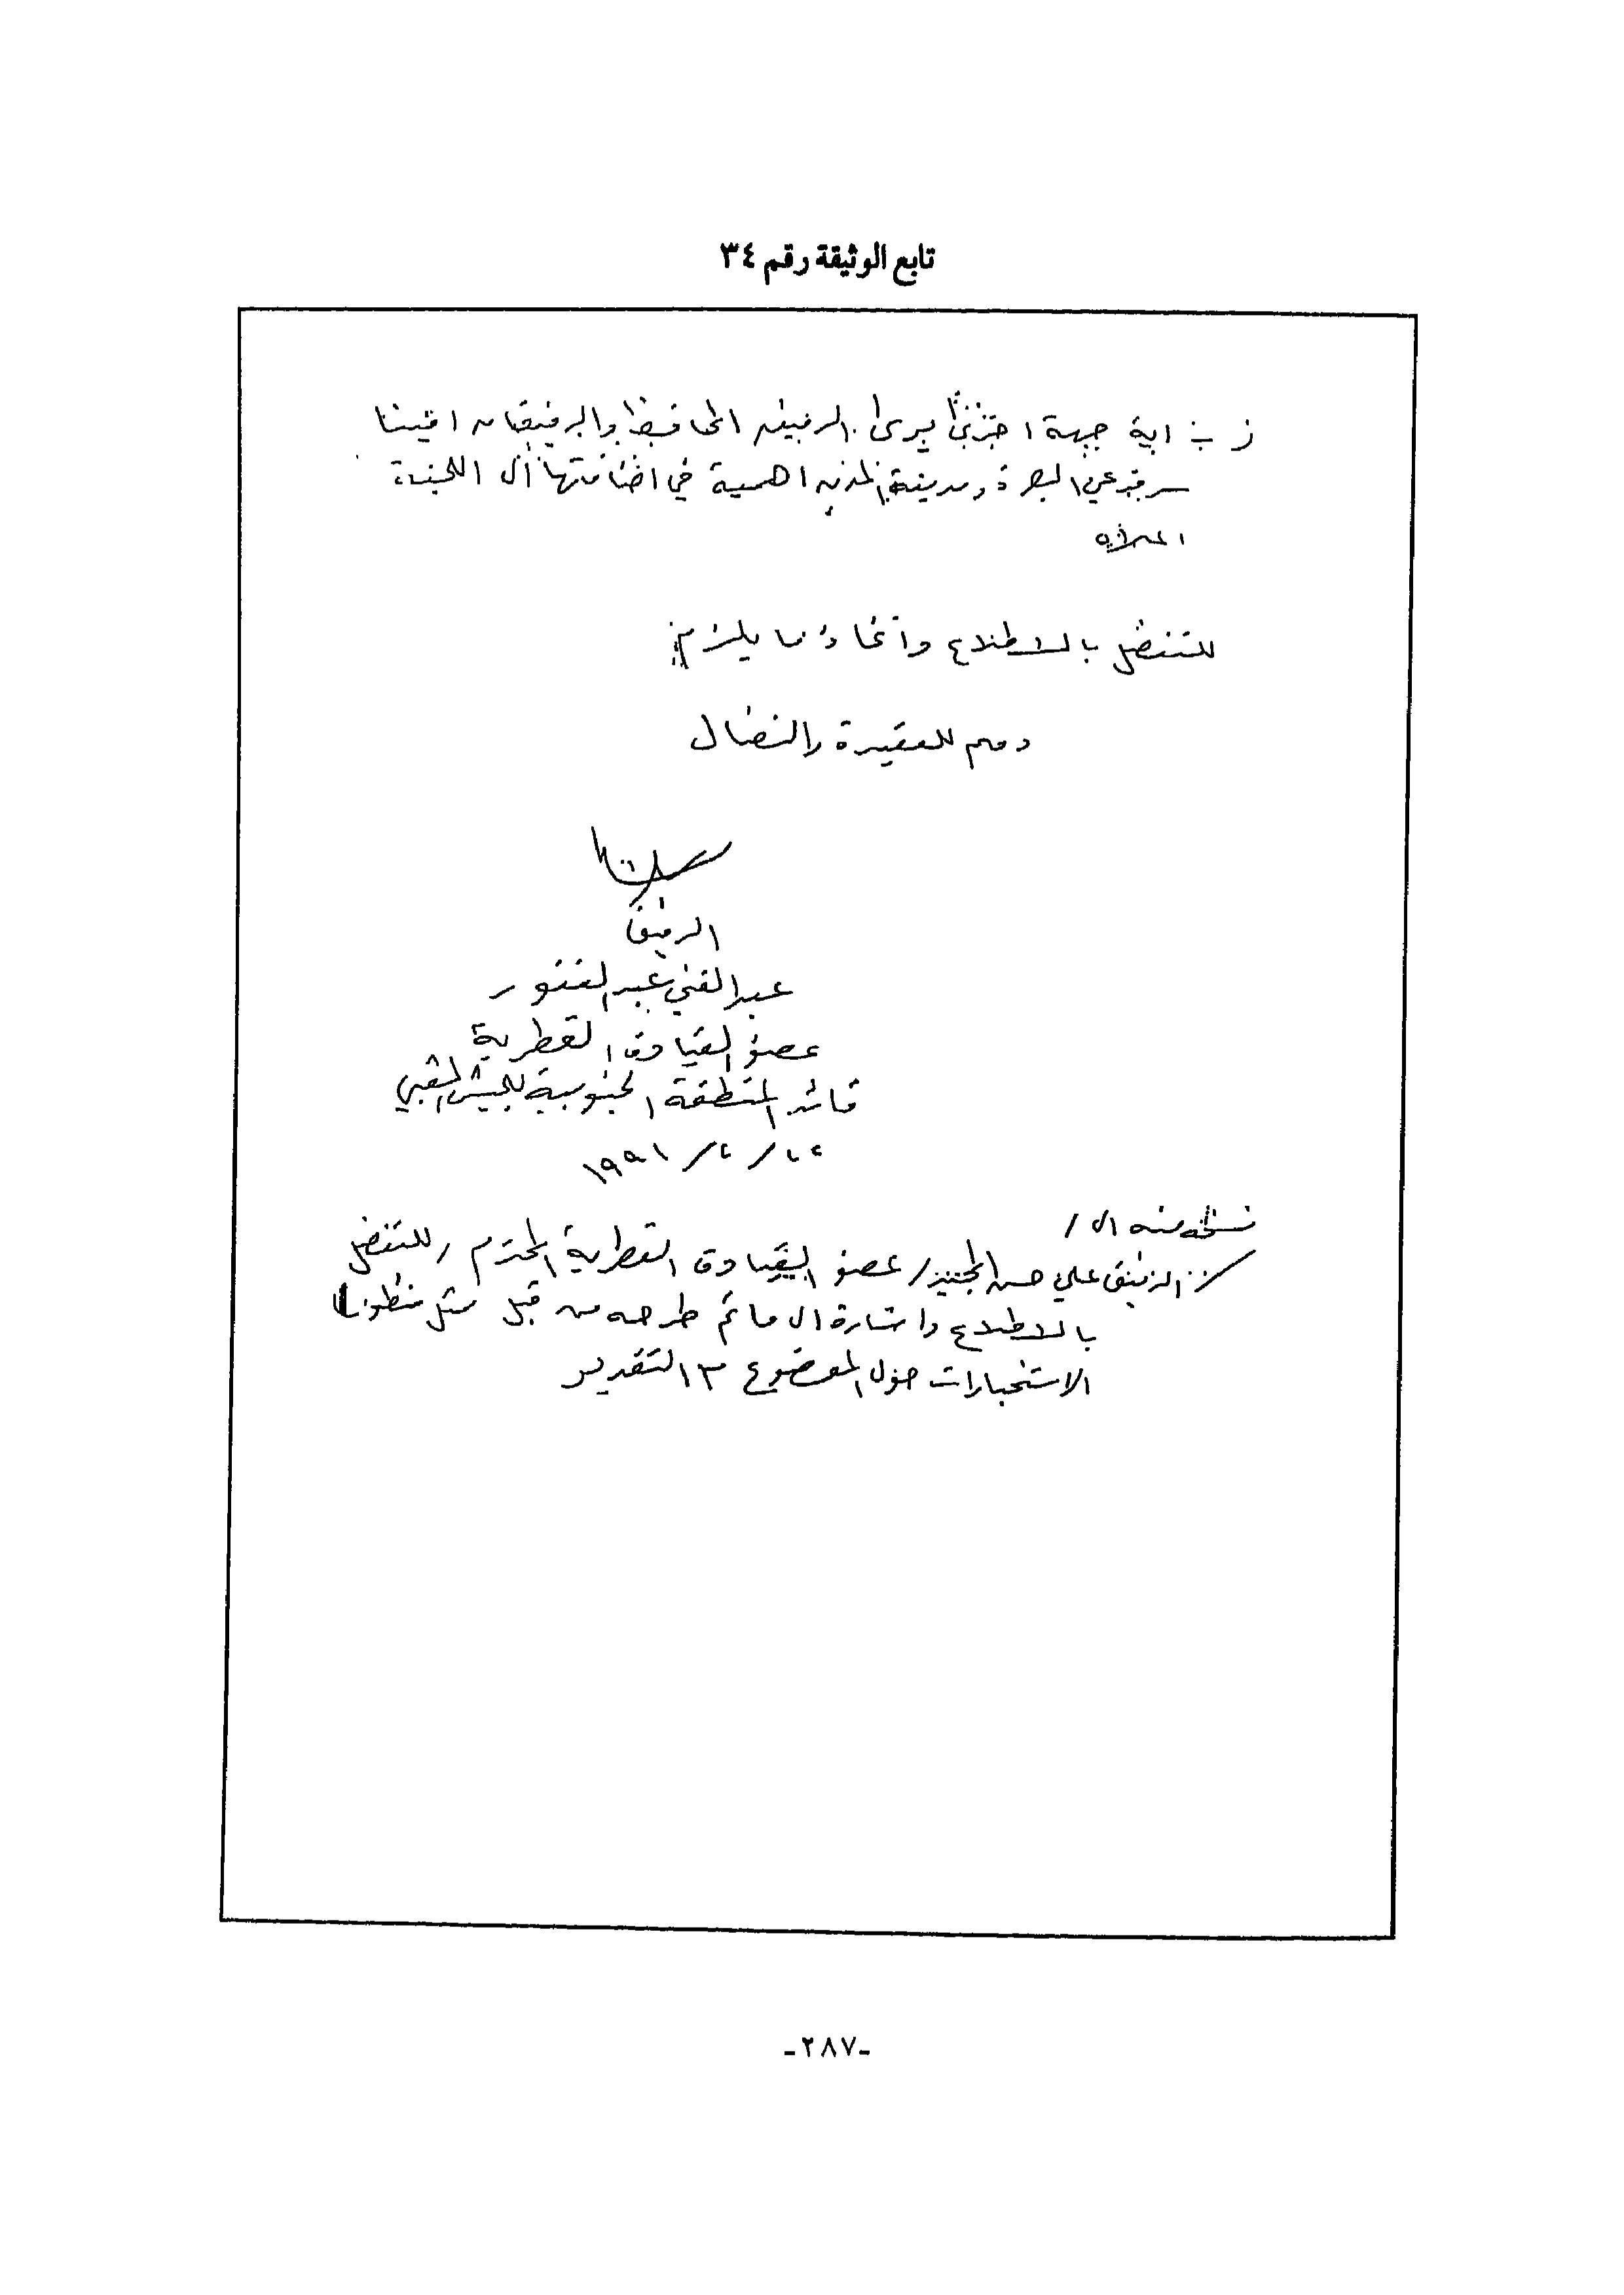 تابع الوثيقة رقم ٣٤
ز - اية جهة اخرى يرى الرفيق المحافظ والرفيقان اميننا
سر فرعي البصرة ومدينة اهمية في اضافتها الى اللجنة
اعلاه
للتفضل بالاطلاع واتخاذ ما يلزم
دمتم للعقيدة والنضال
الرفيق
عبد الغني عبد الغفور
عضو القيادة القطرية
قائد المنطقة الجنوبية للجيش الشعبي
١٩٩١
نسخه منه الى /
الرفيق علي حسن المجيد / عضو القيادة القطرية المحترم / للتفضل
بالاطلاع واشارة الى ما تم طرحه من قبل ممثل منظومة
الاستخبارات حول الموضوع مع التقدير
-٢٨٧-